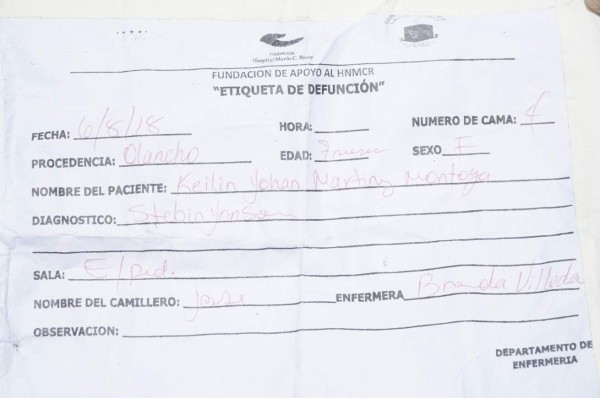 FUNDACION
Hospital María C. Rossy
FUNDACION DE APOYO AL HNMCR
"ETIQUETA DE DEFUNCIÓN"
FECHA: 6/8/18 HORA: NUMERO DE CAMA: 4
PROCEDENCIA: Olancho EDAD: 7 meses SEXO F
NOMBRE DEL PACIENTE: Keilin Yohan Martinz Montoya
DIAGNOSTICO: Stebin Yonson
SALA: E/ped.
NOMBRE DEL CAMILLERO: Jose ENFERMERA Brenda Villeda
OBSERVACION:
DEPARTAMENTO DE
ENFERMERIA